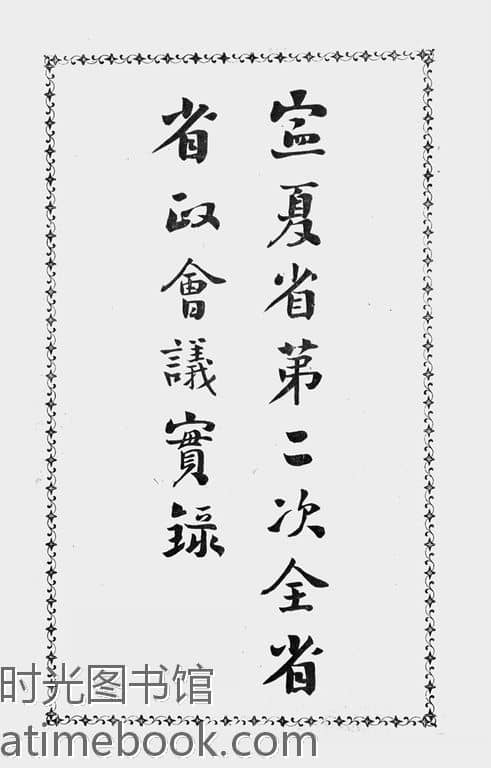 寍夏省第二次全省
省政會議實錄
时光图书馆
atimebook.com